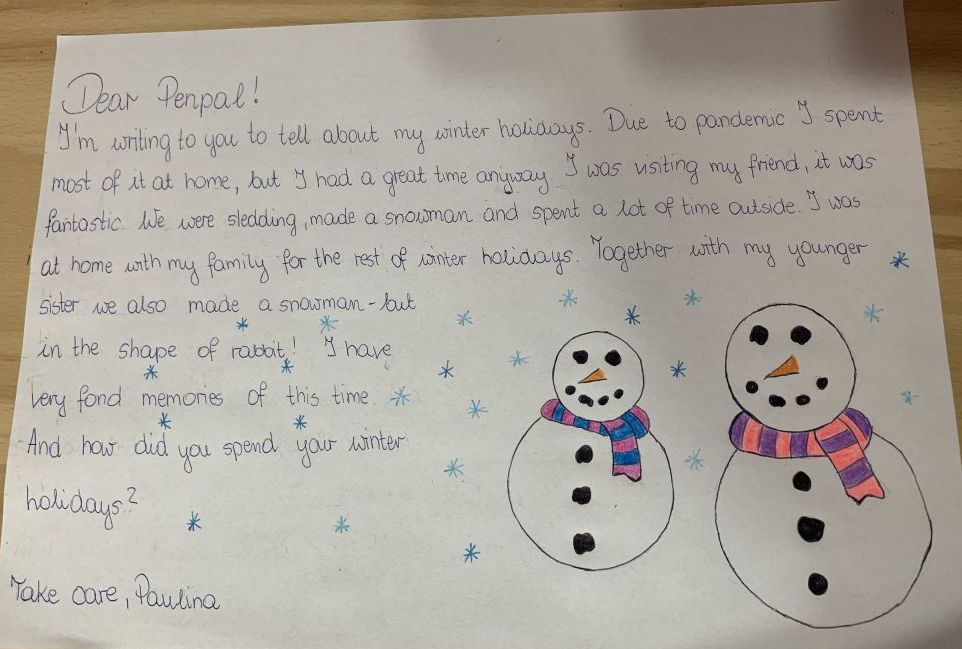 Dear Penpal!
I'm writing to you to tell about my winter holidays. Due to pandemic I spent
most of it at home, but I had a great time anyway. I was visiting my friend, it was
fantastic. We were sledding, made a snowman and spent a lot of time outside. I was
at home with my family for the rest of winter holidays. Together with my younger
sister we also made a snowman - but
in the shape of rabbit! I have
very fond memories of this time.
And how did you spend your winter
holidays?
Take care, Paulina